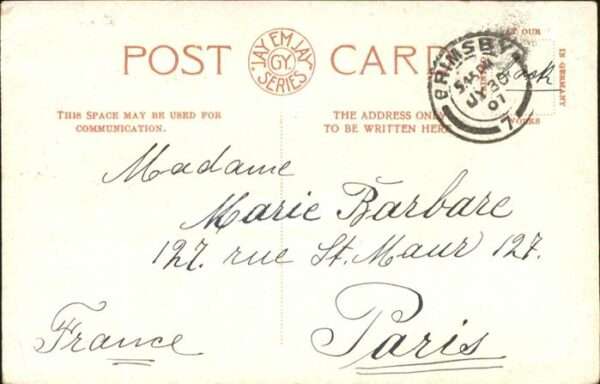 POST CARD
JAY EM JAY
GY.
SERIES
GRIMSBY
5.45 PM
JY 30
07
7
AT OUR
WORKS
IN GERMANY
THIS SPACE MAY BE USED FOR
COMMUNICATION.
THE ADDRESS ONLY
TO BE WRITTEN HERE
Madame
Marie Barbare
127. rue St. Maur 127.
Paris
France